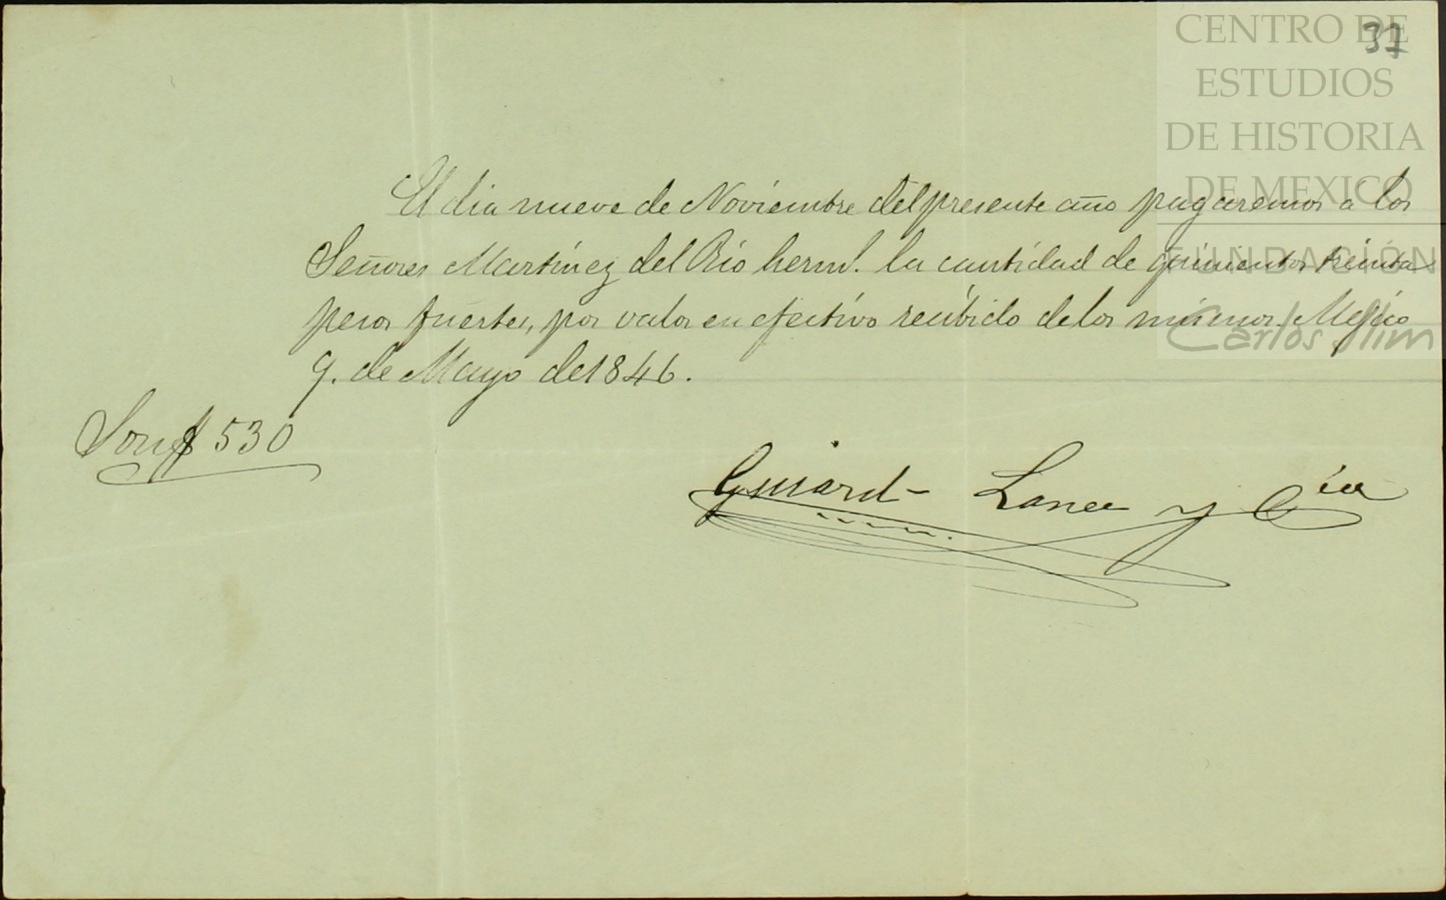 37
CENTRO DE
ESTUDIOS
DE HISTORIA
DE MEXICO
FUNDACIÓN
Carlos Slim
El dia nueve de Noviembre del presente año pagaremos a los
Señores Martinez del Rio herm.s la cantidad de quinientos treinta
pesos fuertes, por valor en efectivo recibido de los mismos. Mejico
9. de Mayo de 1846.
Son $ 530
Guiard Lance y Cia